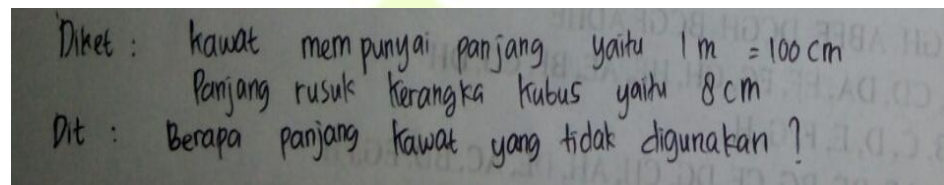 Diket : Kawat mempunyai panjang yaitu 1 m = 100 cm
Panjang rusuk kerangka kubus yaitu 8 cm
Dit : Berapa panjang kawat yang tidak digunakan ?